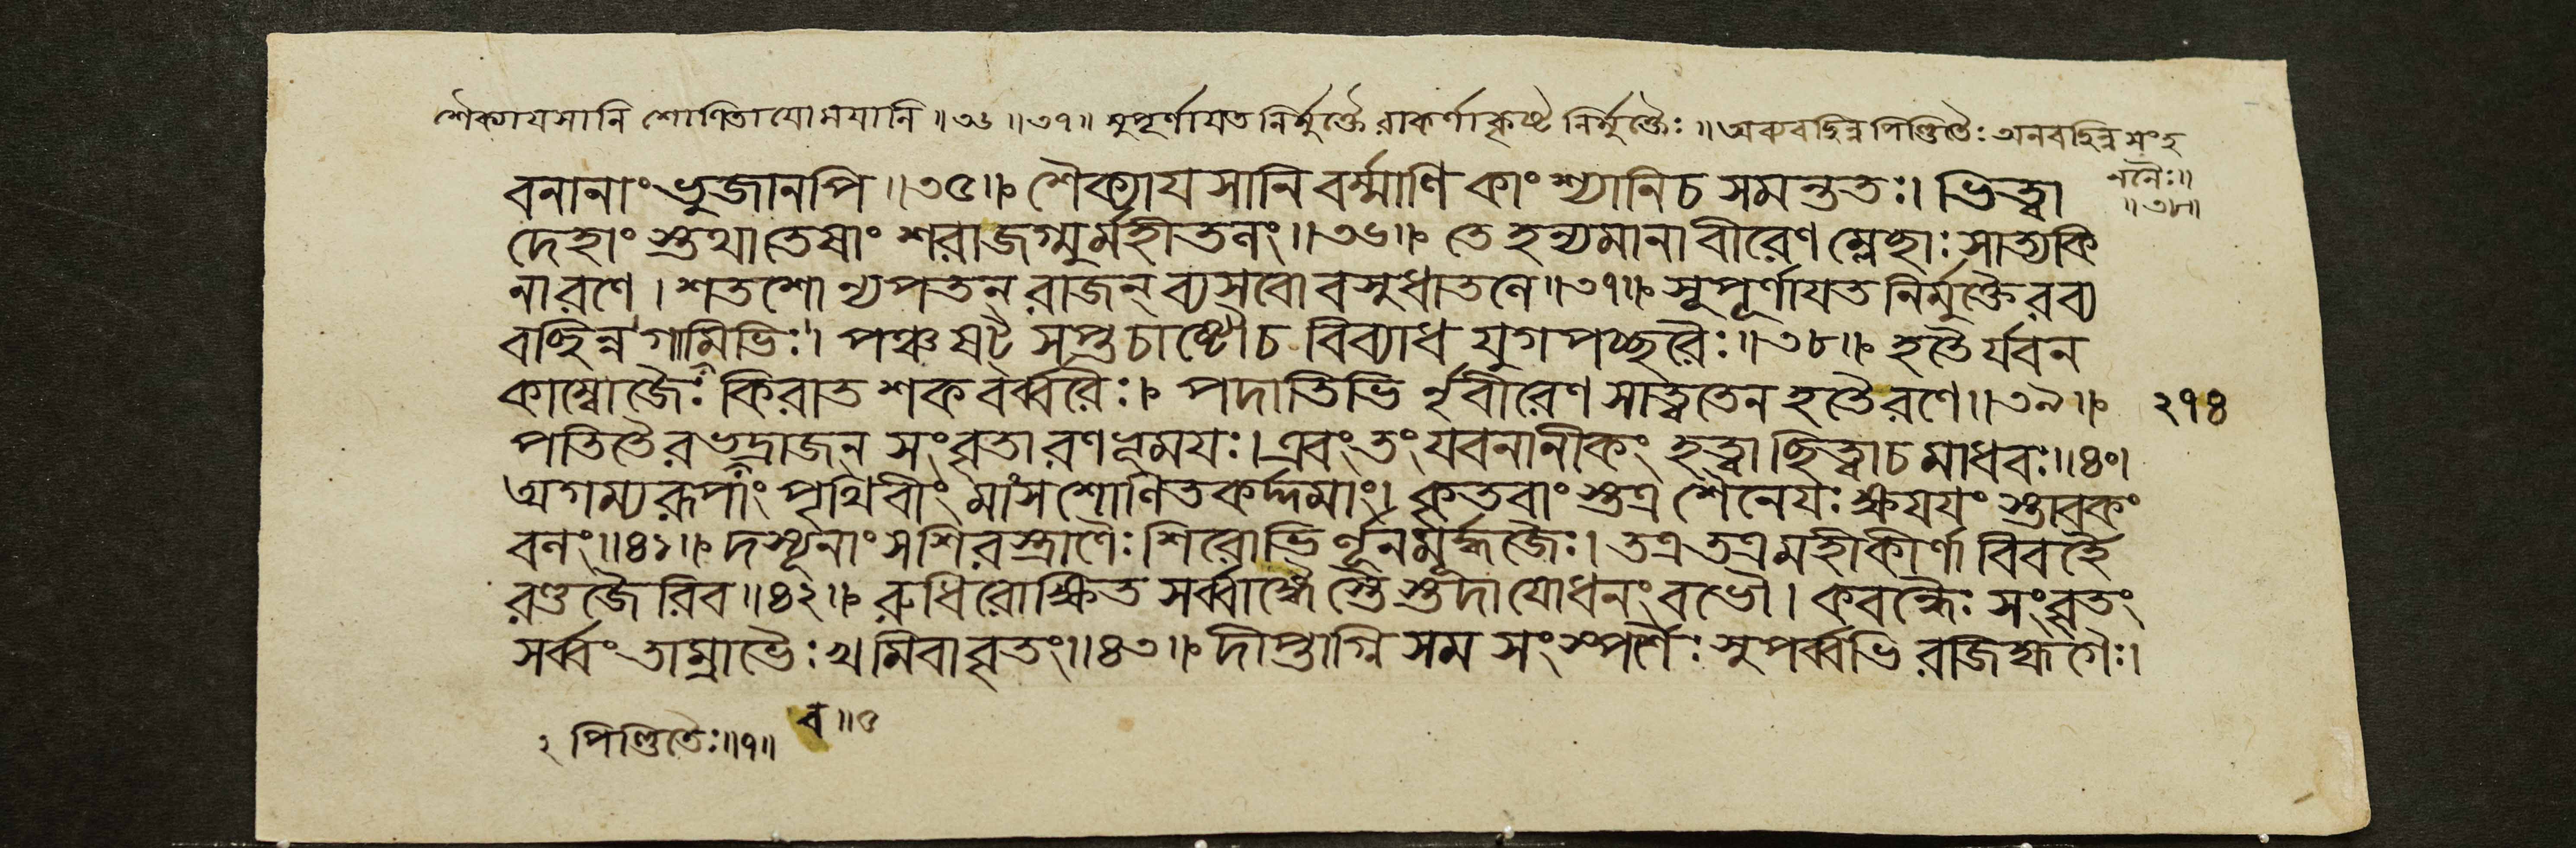 শৈক্যায়সানি শোণিতাযোময়ানি ॥৩৬॥৩৭॥ সুপূর্ণায়ত নির্মুক্তৈ রাকর্ণাকৃষ্টৈ নির্মুক্তৈঃ ॥ অব্যবছিন্ন পিণ্ডিতৈঃ অনবছিন্ন সংহ
ননৈঃ॥
॥৩৮॥
বনানাং ভুজানপি ॥৩৫॥ শৈক্যায়সানি বর্ম্মাণি কাংশ্যানিচ সমন্ততঃ। ভিত্ত্বা
দেহাং স্তুথা তেষাং শরা জগ্মুর্মহীতলং॥৩৬॥ তে হন্যমানা বীরেণ ম্লেছাঃ সাত্যকি
নারণে। শতশো ন্যপতন্ রাজন্ ব্যসবো বসুধাতলে॥৩৭॥ সুপূর্ণায়ত নির্মুক্তৈরব্য
বছিন্ন গামিভিঃ। পঞ্চ ষট্ সপ্ত চাষ্টৌচ বিব্যাধ যুগপচ্ছরৈঃ॥৩৮॥ হতৈর্যবন
কাম্বোজৈঃ কিরাত শক বর্ব্বরৈঃ। পদাতিভি র্নৃবীরেণ সাত্বতেন হতৈরণে॥৩৯॥ ২৭৪
পতিতৈরভূদ্রাজন্ সংবৃতা রণভূময়ঃ। এবং তং যবনানীকং হত্বা ছিত্বাচ মাধবঃ॥৪০।
অগম্যরূপাং পৃথিবীং মাংসশোণিতকর্দ্দমাং। কৃতবাং স্তত্র শৈনেয়ঃ ক্ষয়যং স্তাবকং
বলং॥৪১॥ দস্যূনাং সশিরস্ত্রাণৈঃ শিরোভি র্লূনমূর্দ্ধজৈঃ। তত্র তত্র মহীকীর্ণা বিবর্হৈ
রণ্ডজৈরিব॥৪২॥ রুধিরোক্ষিত সর্ব্বাঙ্গৈ স্তৈ স্তদাযোধনং বভৌ। কবন্ধৈঃ সংবৃতং
সর্ব্বং তাম্রাভ্রৈঃ খমিবাবৃতং॥৪৩॥ দীপ্তাগ্নি সম সংস্পর্শৈঃ সুপর্ব্বভি রজিহ্মগৈঃ।
২ পিণ্ডিতৈঃ॥৭॥
ব॥৫